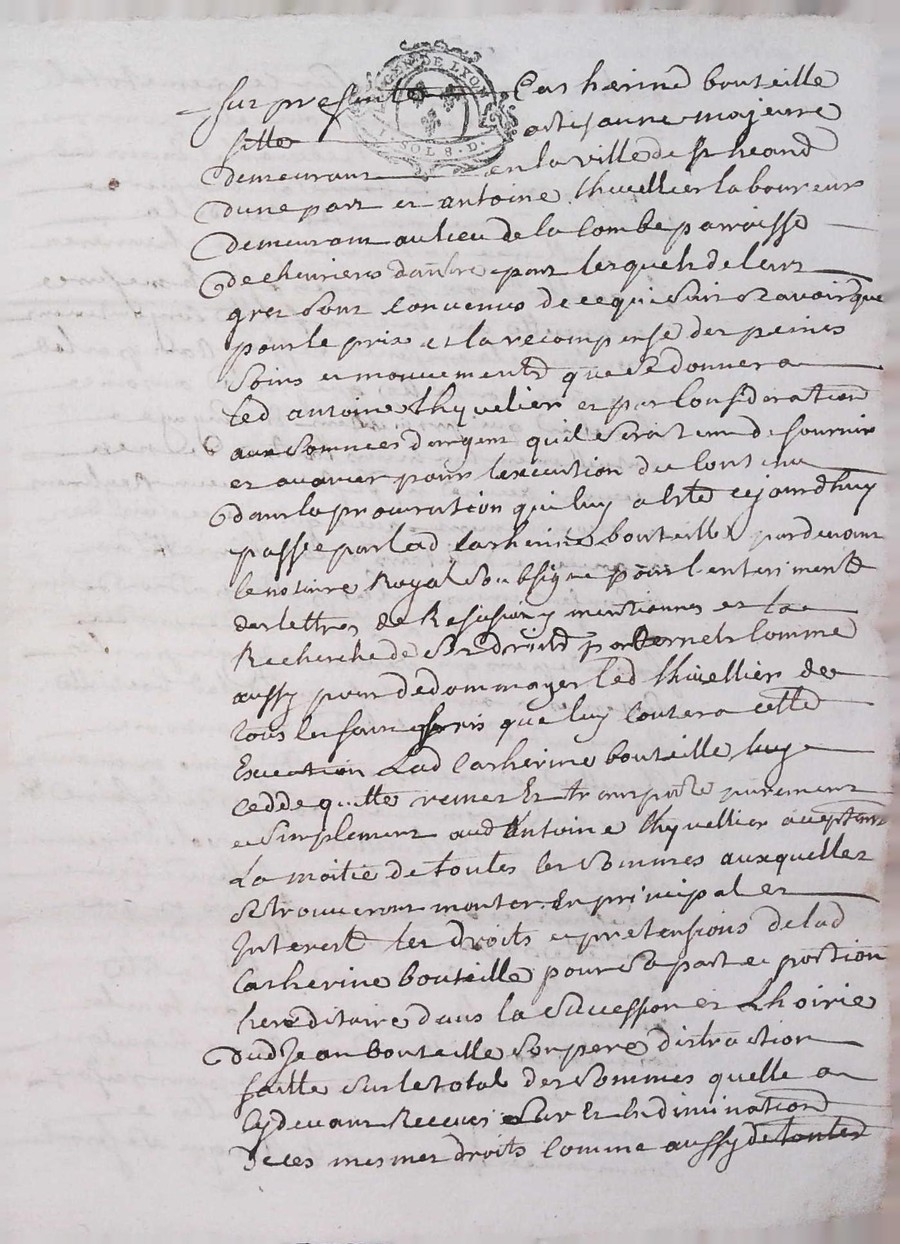 GEN. DE LYON
I. SOL 8. D.
Sur presente Catherine bouteille
fille artisanne majeure
demeurant en la ville de St heand
dune part et antoine thivellier laboureur
demeurant au lieu de la Combe parroisse
de chevrieres dautre part lesquels de leur
grez sont convenus de ce qui suit scavoir que
pour le prix et la recompense des peines
soins et mouvements que se donnera
led antoine thyvelier et par consideration
aux sommes dargent quil serat tenu de fournir
et avancer pour lexecution du contenu
dans la procuration qui luy a esté cejourdhuy
passé par lad Catherine bouteille pardevant
le notaire Royal soubsigné pour lenteriment
des lettres de Resision y mentionnes et la
Recherche de ses droits paternels Comme
aussy pour dedommager led thivellier de
tous les faux frais que luy coutera cette
Execution Lad Catherine bouteille luy
cedde quitte remet Et transporte purement
et simplement aud Antoine thyvellier acceptant
La moitié de toutes les sommes auxquelles
se trouveront monter En principal et
Interest les droits et pretensions de lad
Catherine bouteille pour sa part et portion
hereditaire dans la succession et Lhoirie
dud Jean bouteille son pere distraction
faitte sur le total des sommes quelle a
cy devant Receues sur Et En diminution
de ces mesmes droits Comme aussy de toutes